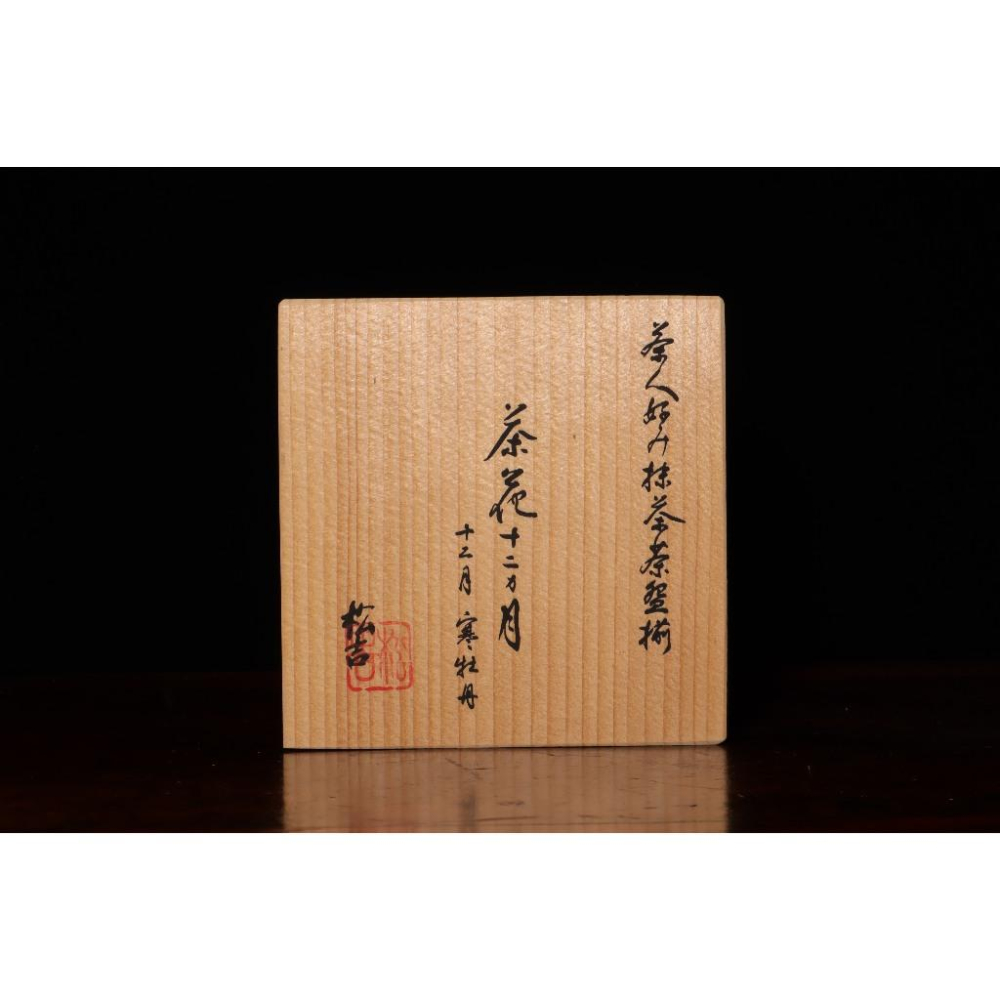 茶人好み抹茶茶盌揃
茶花十二カ月
十二月 寒牡丹
松吉
松吉